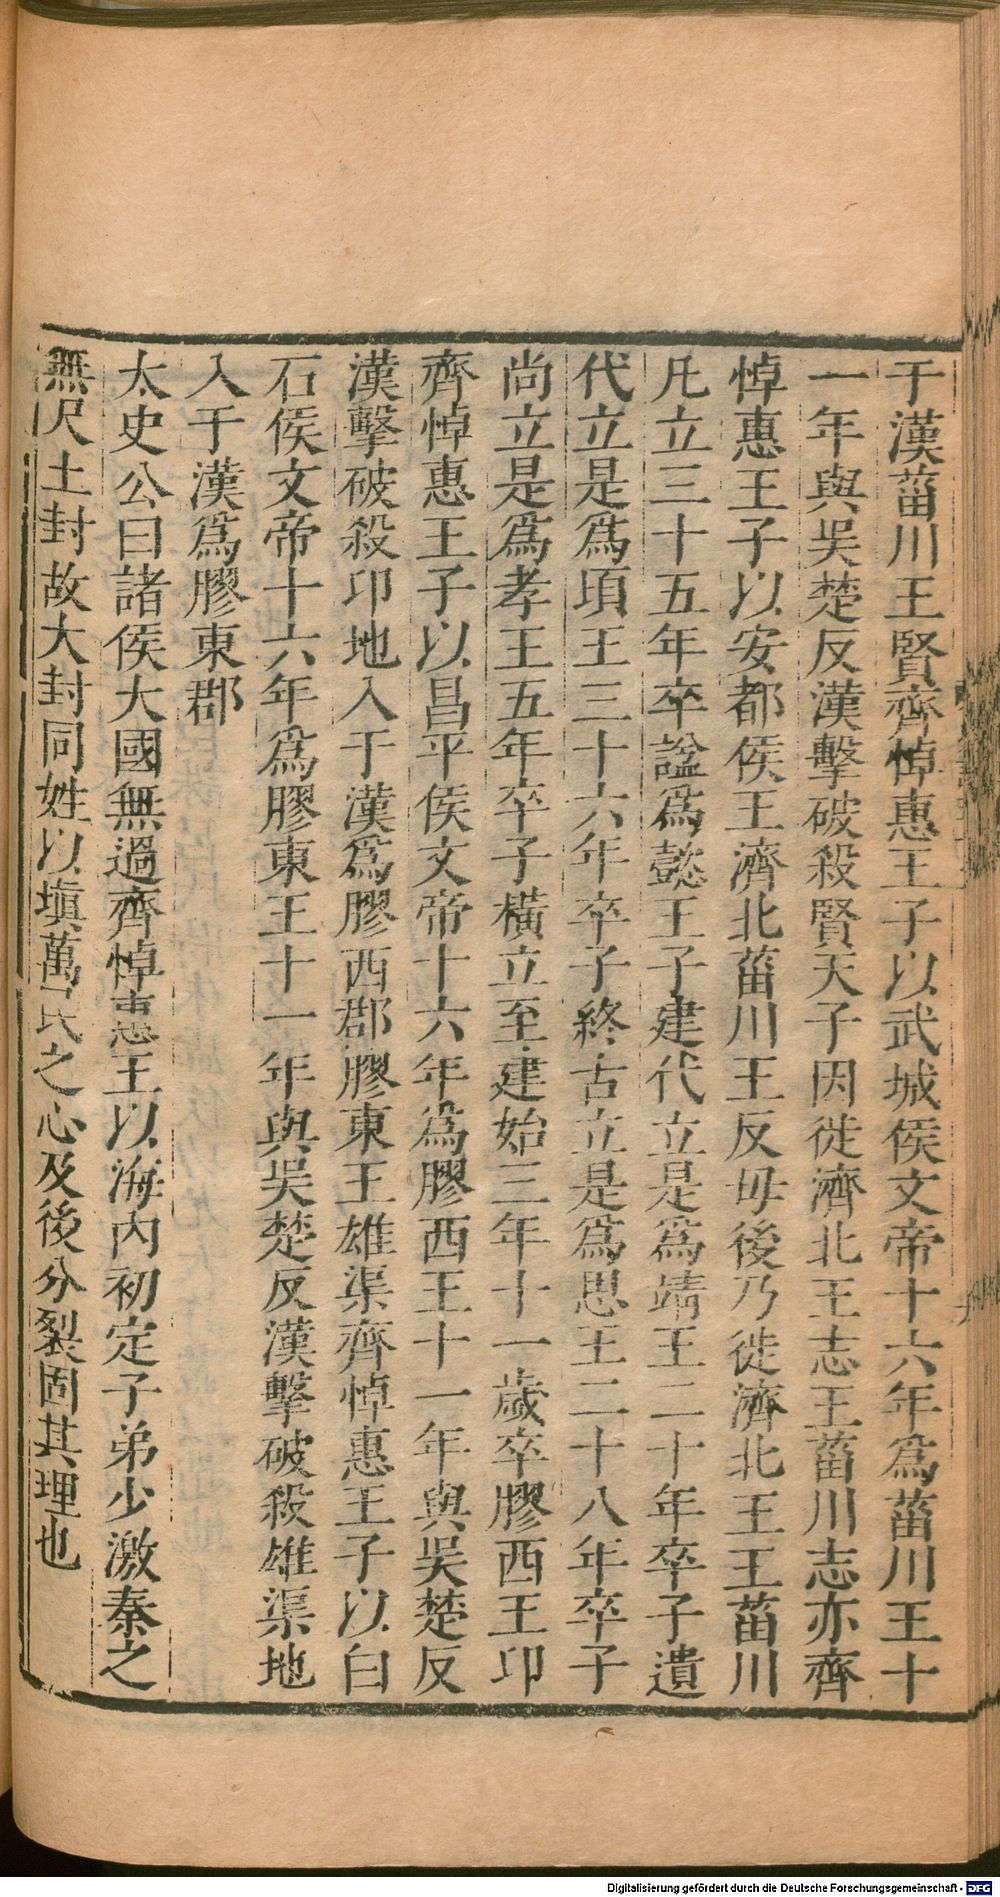 于漢菑川王賢齊悼惠王子以武城侯文帝十六年爲菑川王十
一年與吳楚反漢擊破殺賢天子因徙濟北王志王菑川志亦齊
悼惠王子以安都侯王濟北菑川王反毋後乃徙濟北王王菑川
凡立三十五年卒諡爲懿王子建代立是爲靖王二十年卒子遺
代立是爲頃王三十六年卒子終古立是爲思王二十八年卒子
尚立是爲孝王五年卒子橫立至建始三年十一歲卒膠西王卬
齊悼惠王子以昌平侯文帝十六年爲膠西王十一年與吳楚反
漢擊破殺卬地入于漢爲膠西郡膠東王雄渠齊悼惠王子以白
石侯文帝十六年爲膠東王十一年與吳楚反漢擊破殺雄渠地
入于漢爲膠東郡
太史公曰諸侯大國無過齊悼惠王以海內初定子弟少激秦之
無尺土封故大封同姓以塡萬民之心及後分裂固其理也
Digitalisierung gefördert durch die Deutsche Forschungsgemeinschaft - DFG